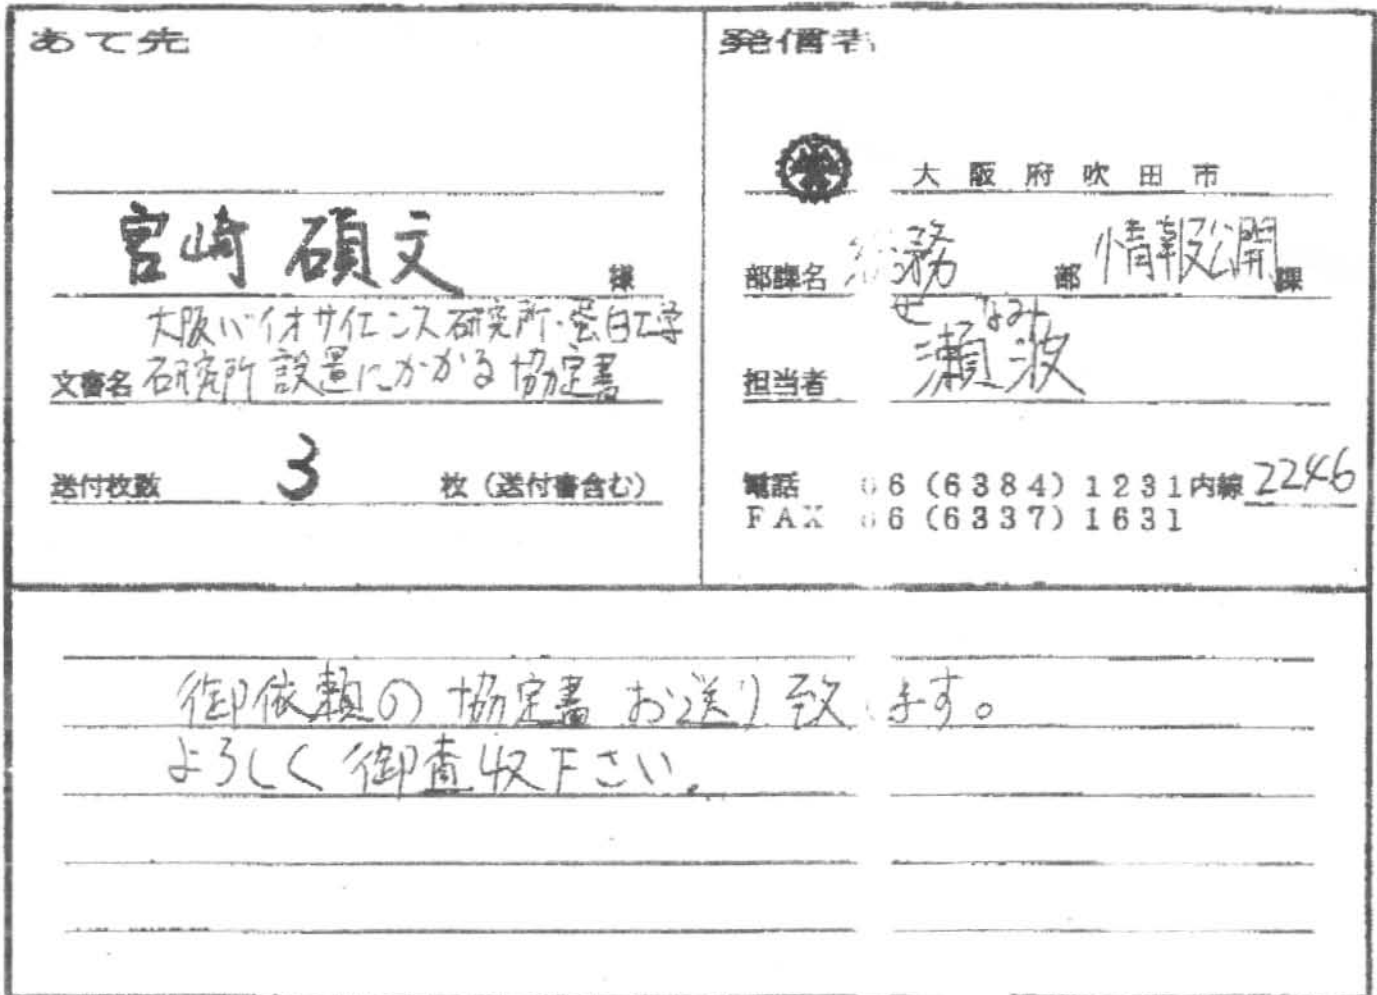 あて先
宮崎 碩文 様
大阪バイオサイエンス研究所・蛋白工学
文書名 研究所設置にかかる協定書
送付枚数 3 枚（送付書含む）
発信者
大阪府吹田市
部課名 総務 部 情報公開 課
せ なみ
担当者 瀬波
電話 06(6384)1231内線2246
FAX 06(6337)1631
御依頼の協定書お送り致します。
よろしく御査収下さい。